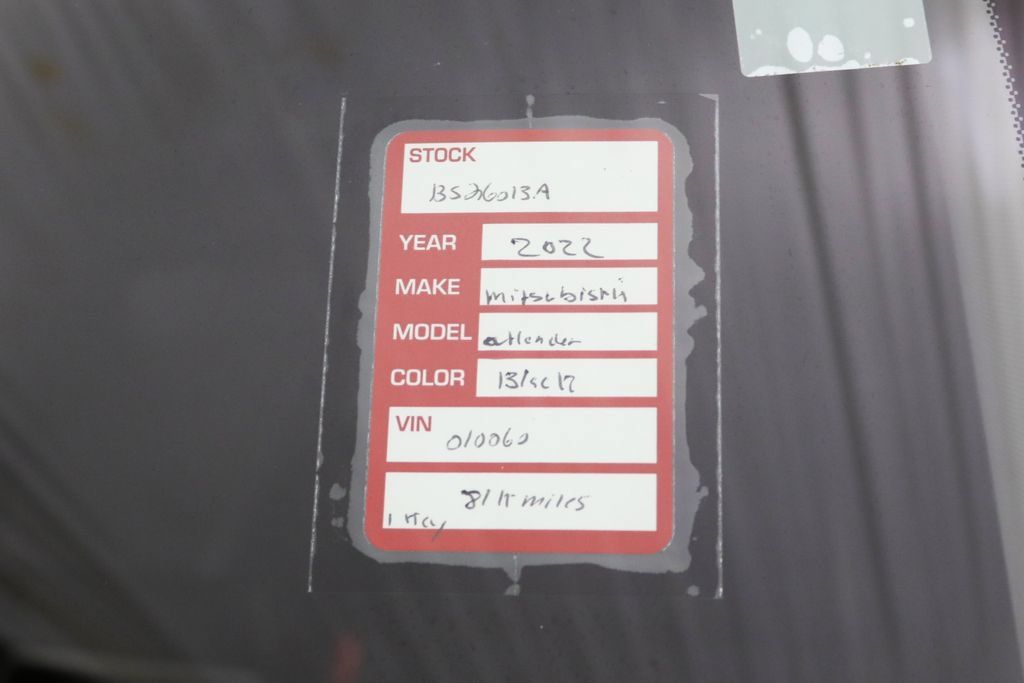 STOCK
BS26013A
YEAR 2022
MAKE Mitsubishi
MODEL outlander
COLOR Black
VIN 010060
81K miles
1 Key